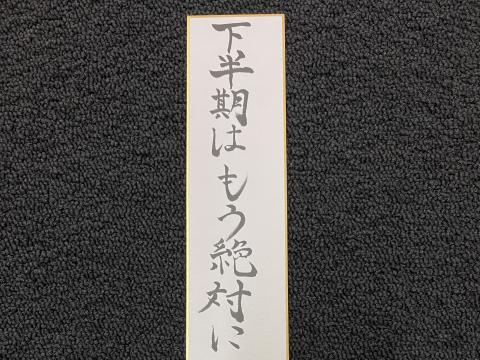 下半期はもう絶対に